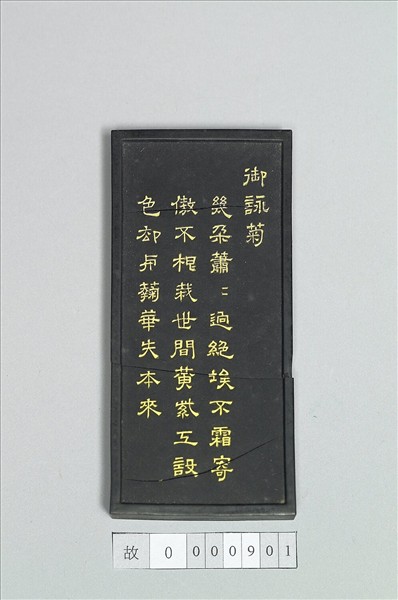 御詠菊
幾朵蕭〻迥絕埃不霜寄
傲不根栽世間黃紫工設
色却与蘜華失本來
故 0 000901